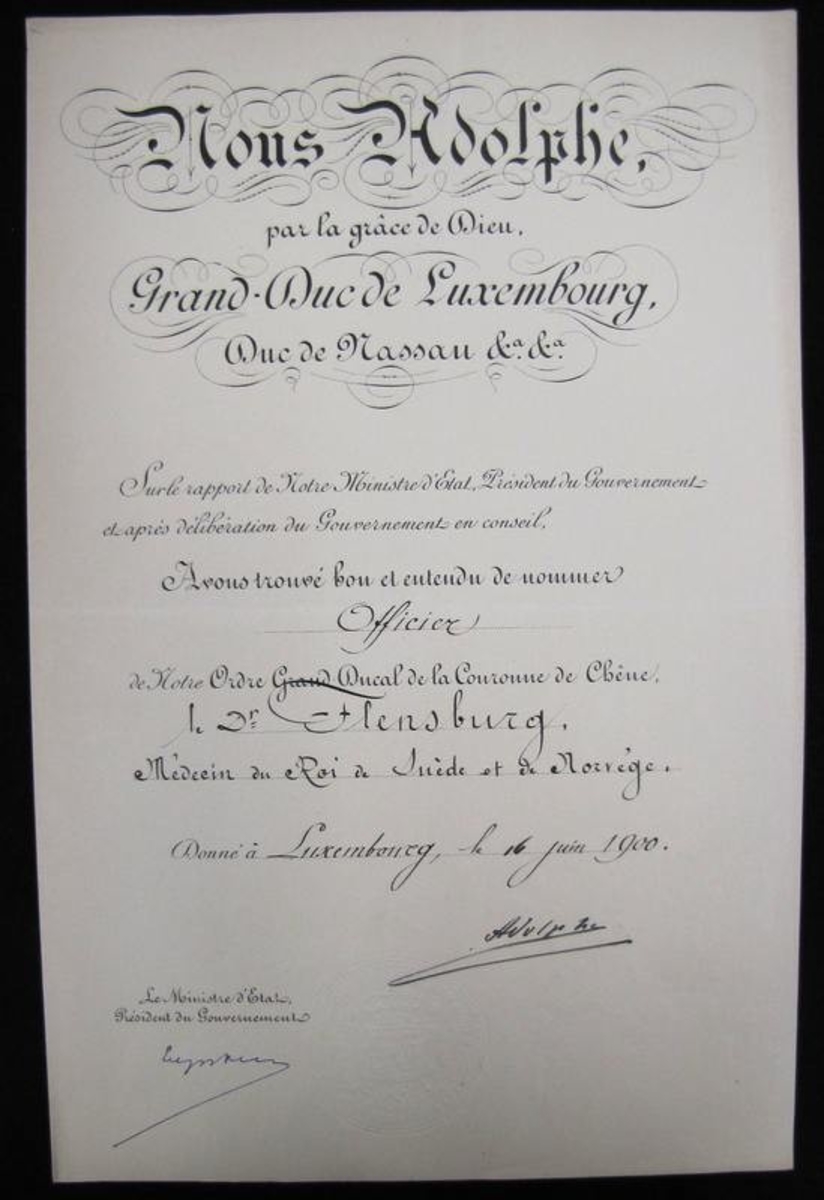 Nous Adolphe,
par la grâce de Dieu,
Grand-Duc de Luxembourg,
Duc de Nassau &a. &a.
Sur le rapport de Notre Ministre d'Etat, Président du Gouvernement
et après délibération du Gouvernement en conseil,
Avons trouvé bon et entendu de nommer
Officier
de Notre Ordre Grand Ducal de la Couronne de Chêne,
le Dr. Flensburg,
Médecin du Roi de Suède et de Norvège.
Donné à Luxembourg, le 16 juin 1900.
Adolphe
Le Ministre d'Etat,
Président du Gouvernement